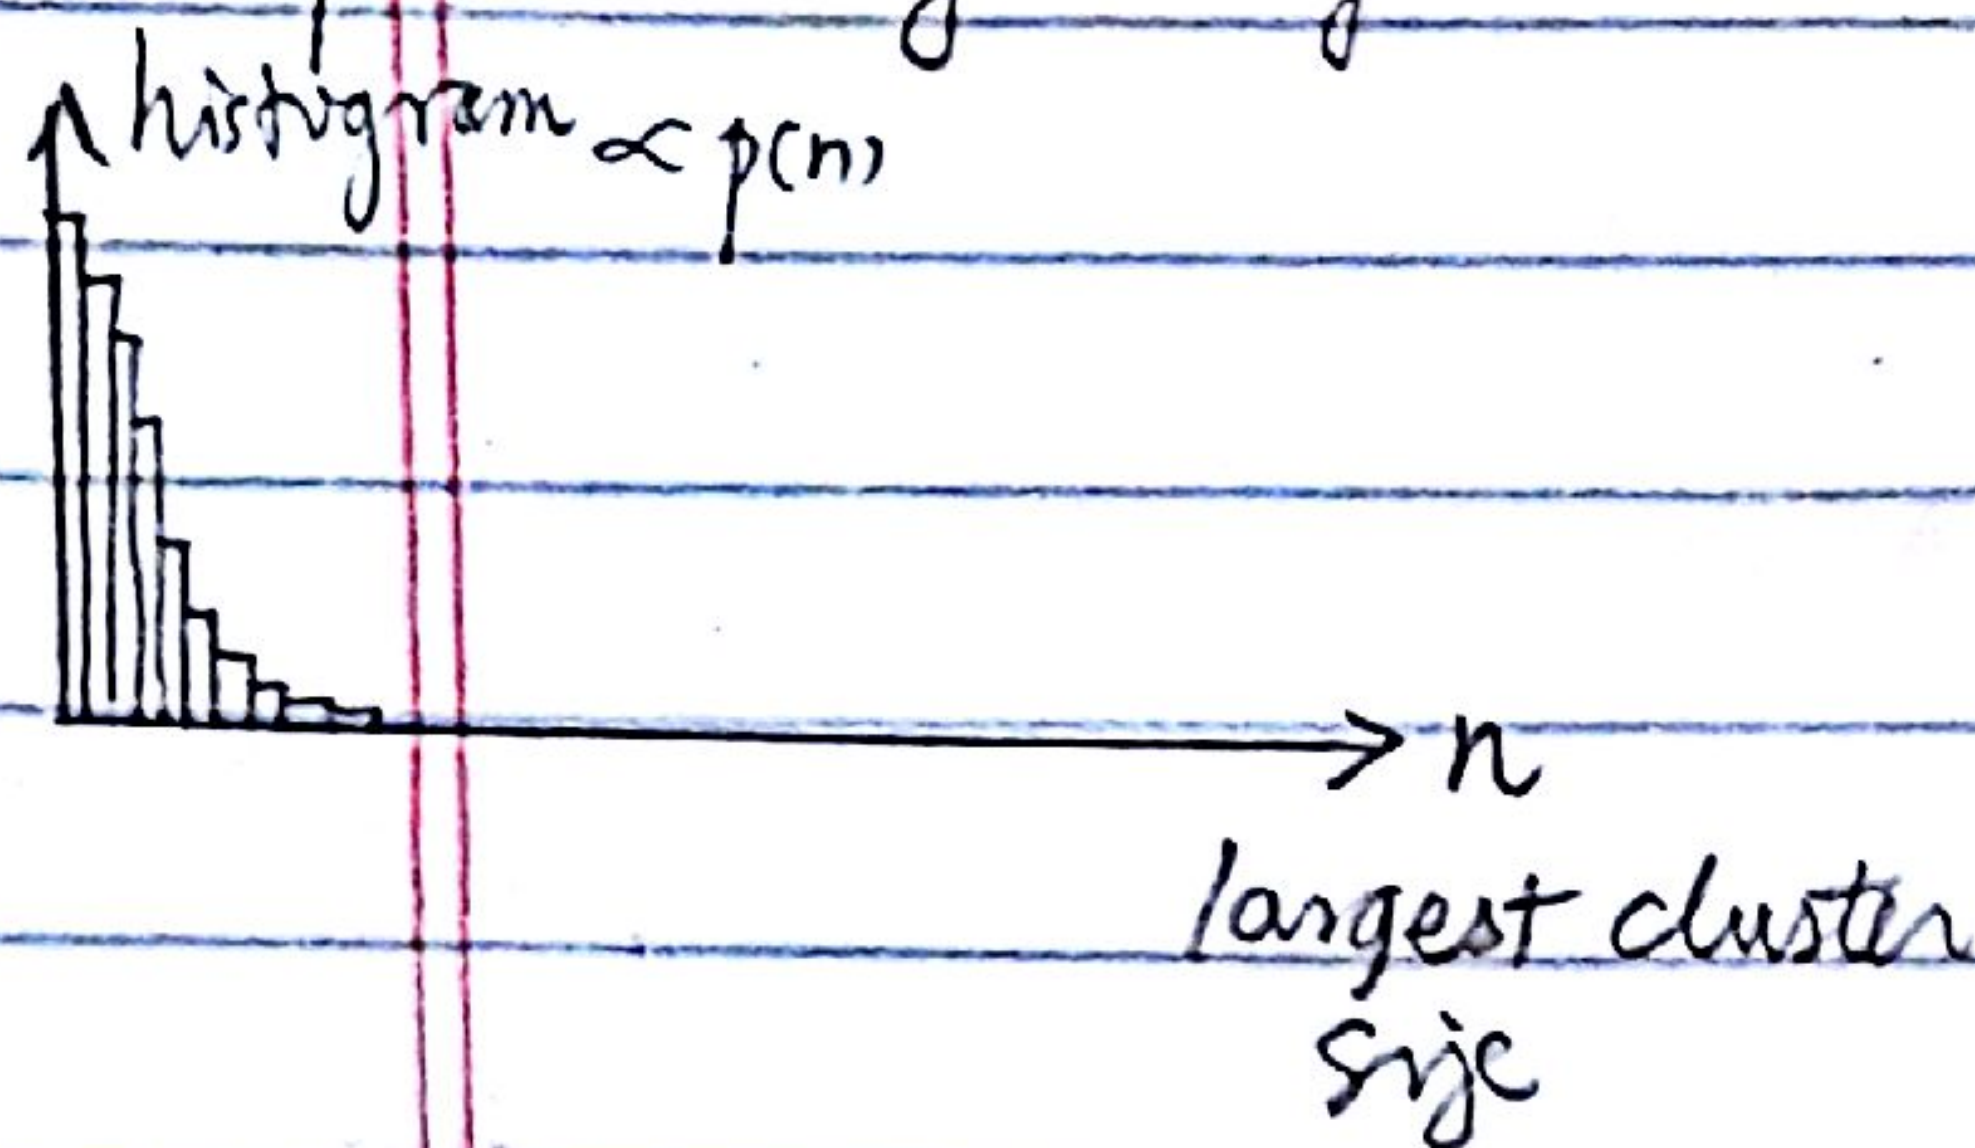 histogram ∝ p(n)
n
largest cluster
size